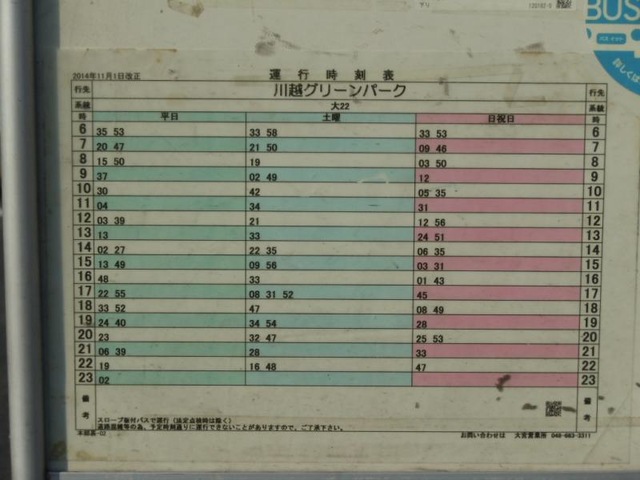 BUS
詳しくは
2014年11月1日改正 運行時刻表
行先 川越グリーンパーク 行先
系統 大22 系統
時 平日 土曜 日祝日 時
6 35 53 33 58 33 53 6
7 20 47 21 50 09 46 7
8 15 50 19 03 50 8
9 37 02 49 12 9
10 30 42 05 35 10
11 04 34 31 11
12 03 39 21 12 56 12
13 13 33 24 51 13
14 02 27 22 35 06 35 14
15 13 49 09 56 03 31 15
16 48 33 01 43 16
17 22 55 08 31 52 45 17
18 33 52 47 08 49 18
19 24 40 34 54 28 19
20 23 32 47 25 53 20
21 06 39 28 33 21
22 19 16 48 47 22
23 02 23
備考 備考
スロープ板付バスで運行(法定点検時は除く)
道路混雑等の為、予定時刻通りに運行できないことがありますので、ご了承下さい。
お問い合わせは 大宮営業所 048-683-3311